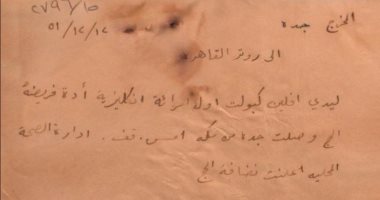 المخرج جدة ٥١/١٢/١٢
الى روتر القاهرة
ليدي افلين كبولت اول امرائة انكليزية أدة فريضة
الحج وصلت جدة من مكه امس . قف . ادارة الصحة
المحليه اعلنت نضافة الحج